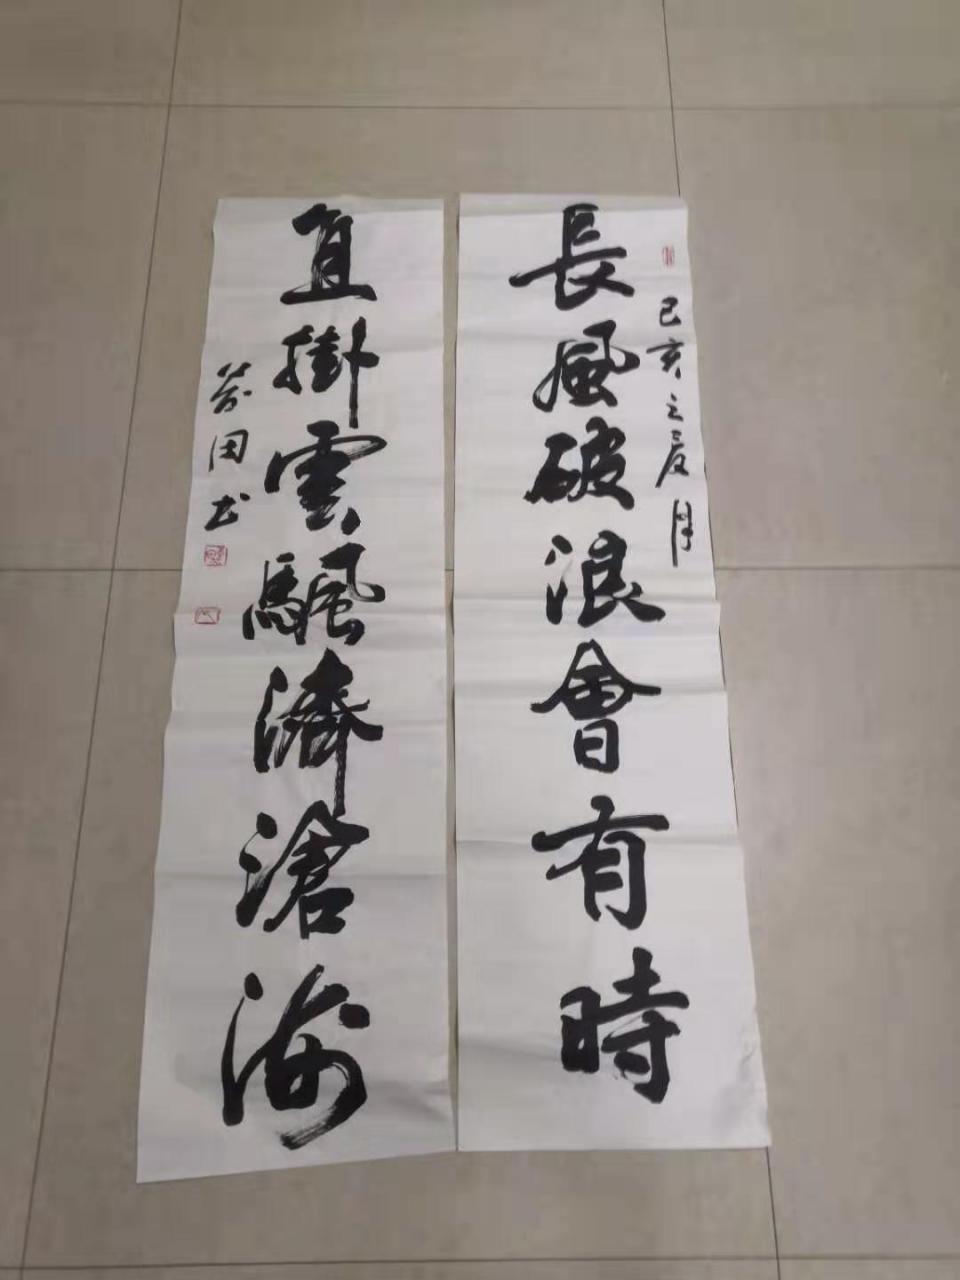 己亥之夏月
長風破浪會有時
直掛雲颿濟滄海
田书